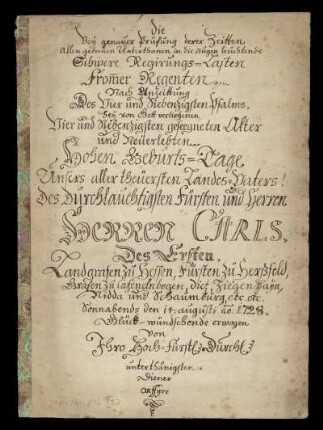 Die
Bey genauer Prüfung derer Zeitten
Allen getreuen Unterthanen in die Augen leuchtende
Schwere Regirungs=Lasten
Fromer Regenten
Nach Anleitung
Des Vier und Siebenzigsten Psalms,
bey von Gott verliehenen
Vier und Siebenzigsten gesegneten Alter
und Neuerlebten
Hohen Geburts=Tage
Unsers aller theuersten Landes=Vaters!
Des Durchlauchtigsten Fürsten und Herren
HERREN CARLS,
Des Ersten,
Landgrafen zu Hessen, Fürsten zu Herßfeld,
Grafen zu Catzenelnbogen, Dietz, Ziegenhayn,
Nidda und Schaumburg, etc. etc.
Sonnabends den 14. augusti ao. 1728.
Glück=wündschende erwogen
von
Ihro Hoch=Fürstl. Durchl.
unterthänigsten
diener